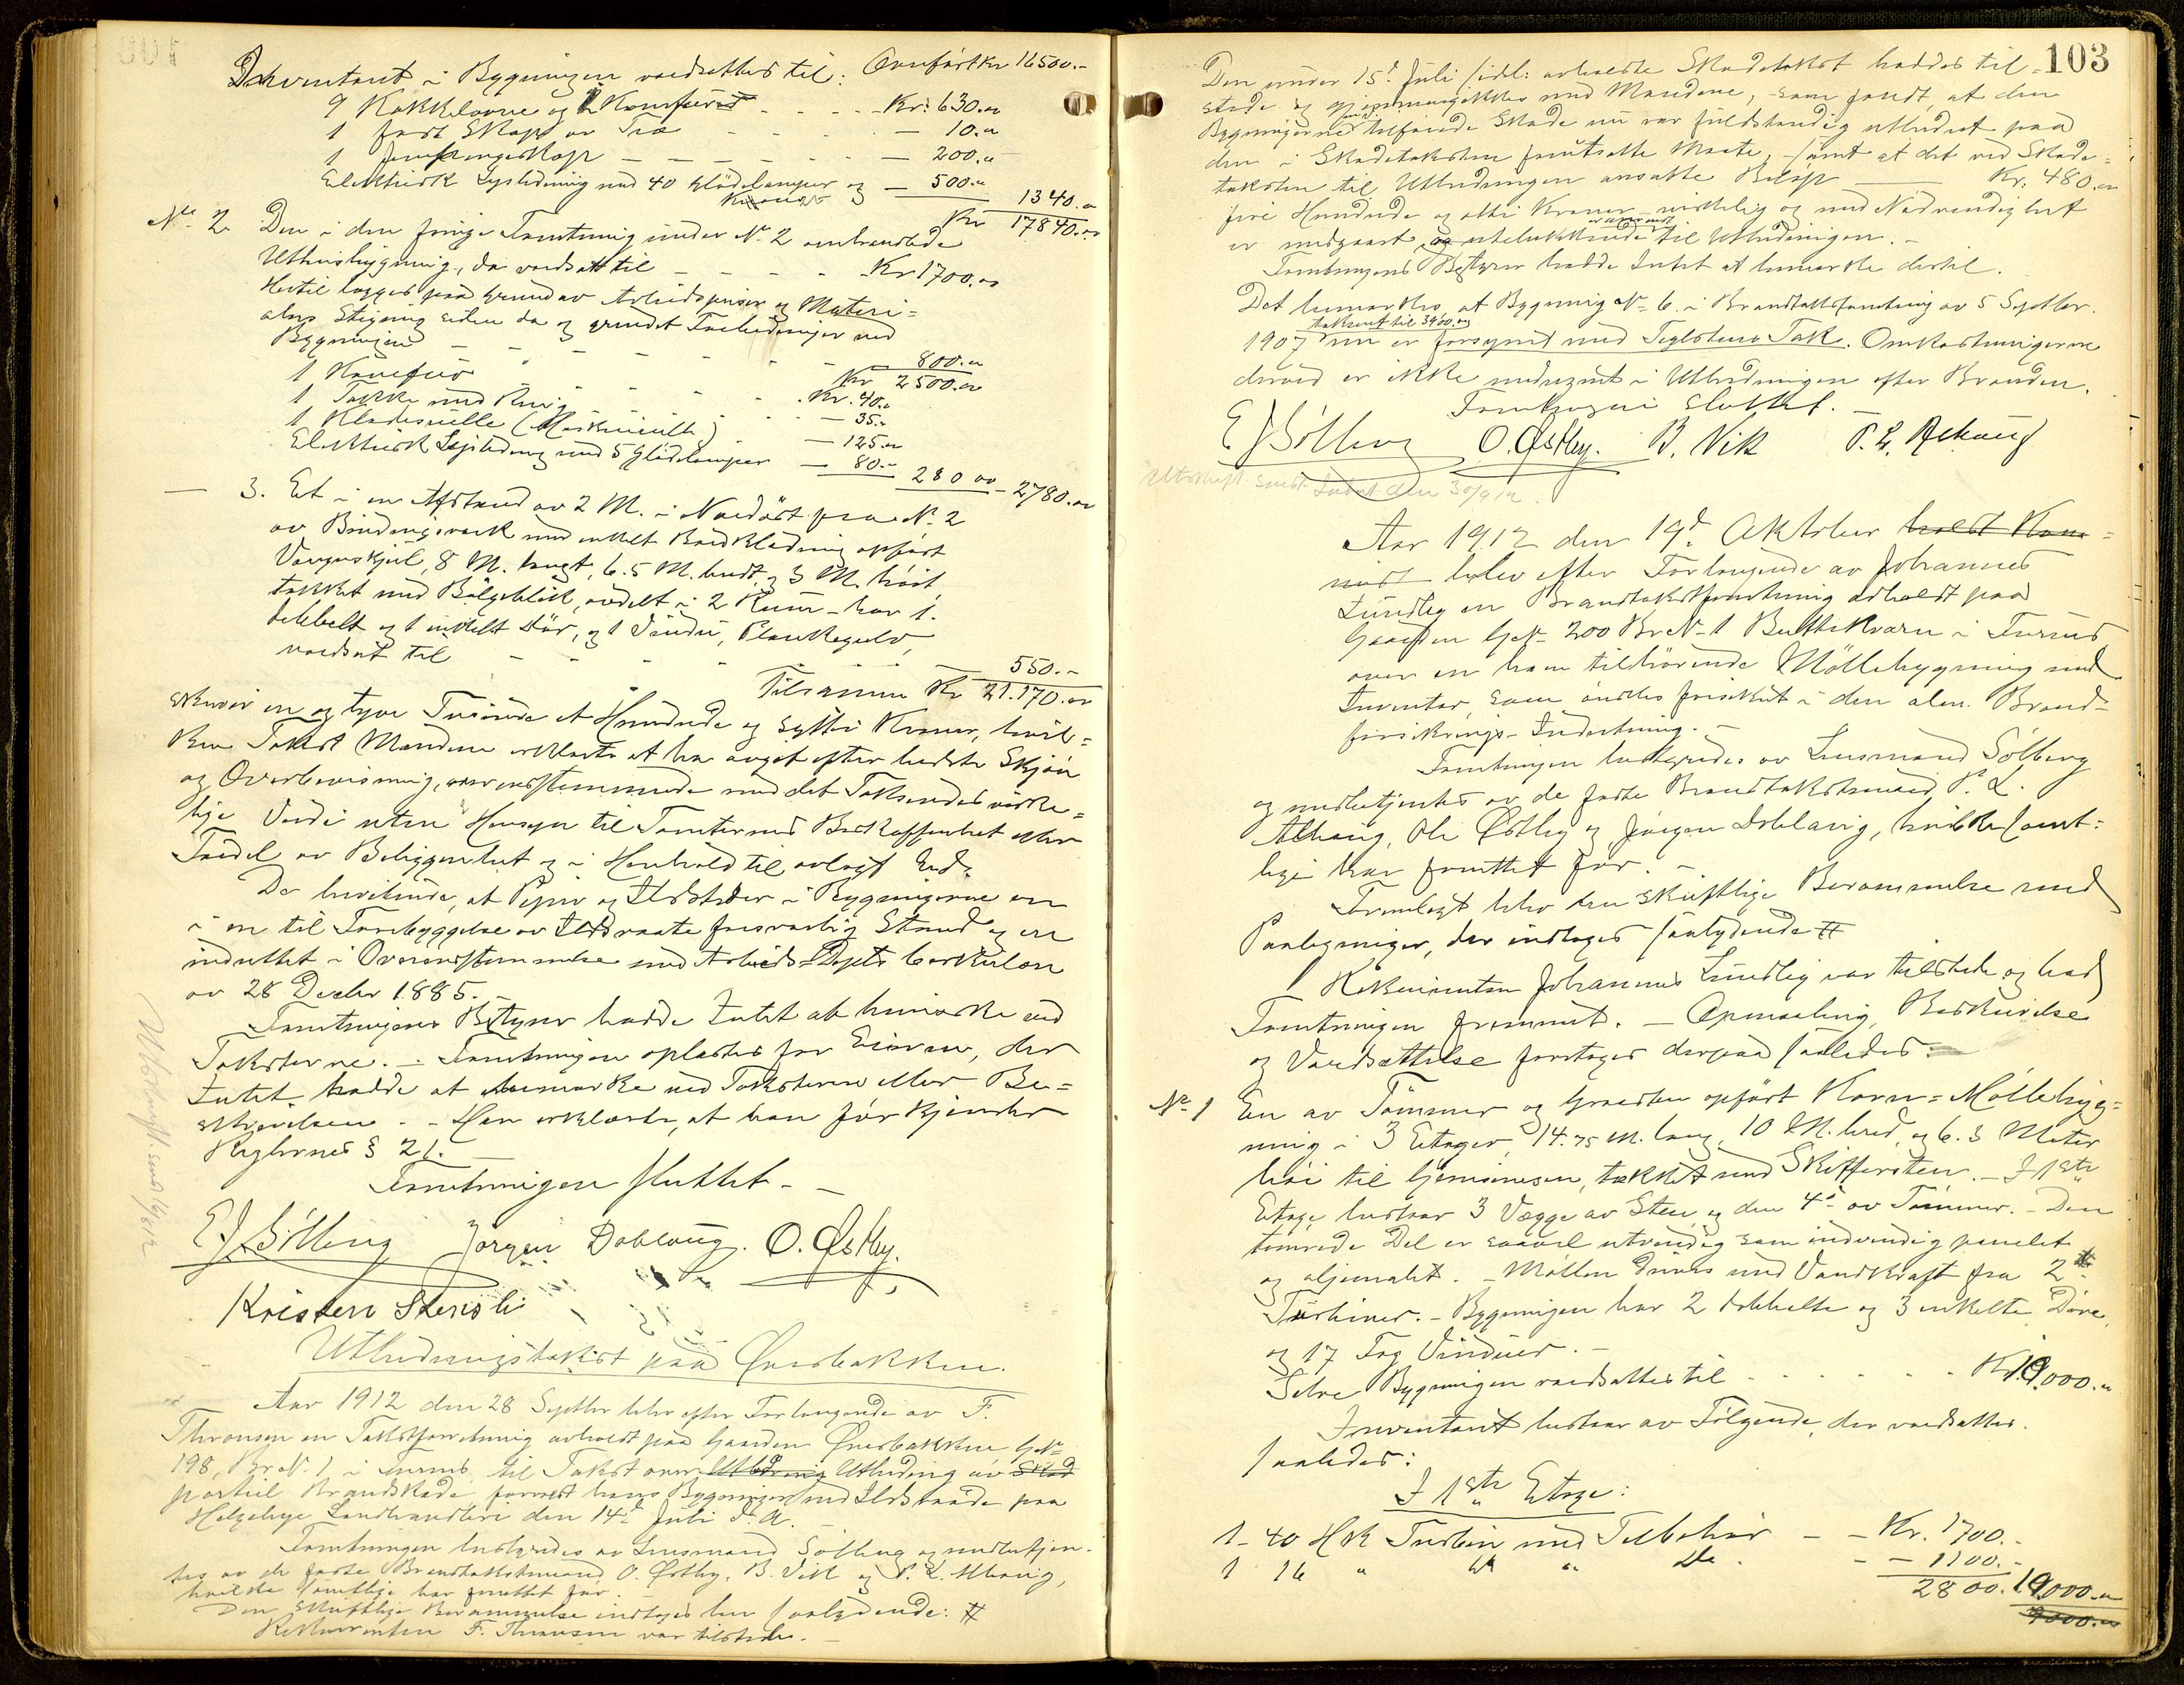 Inventaret i Bygningen værdsættes til: Overført Kr 16500.-
9 Kakkelovne og 2 Komfurer - - - - Kr. 630.00
1 fast Skap av Træ - - - - 10.00
1 - - - - 200.00
Elektrisk Lysledning med 40 Glødelamper og - 500.00 1340.00
Kr 17840.00
No. 2. Den i den forrige Forretning under No. 2 omhandlede
Uthusbygning, da værdsatt til - - - - Kr 1700.00
Hertil lægges paa Grund av Arbeidspriser og Materi=
alers Stigning siden da og Forbedringer ved
Bygningen - - - - 800.00
Kr 2500.00
1 - - - Kr. 40.00
1 Takke med Ring - - - 35.-
1 Klædesrulle - 125.00
Elektrisk Lysledning med 5 Glødelamper - 80.- 280 00 - 2780.00
— 3. Et i en Afstand av 2 M. i Nordøst fra No. 2
av Bindingsværk med enkelt Bordklædning opført
Vognskjul, 8 M. langt, 6.5 M. bredt og 3 M. høit,
tækket med Bølgeblik, avdelt i 2 Rum - har 1
dobbelt og 1 enkelt Dør, og 1 Vindu, Plankegulv,
værdsat til - - - - 550.-
Tilsammen Kr 21.170.00
skriver en og tyve Tusinde et Hundrede og sytti Kroner, hvil=
ken Takst Mændene erklærte at ha avgit efter bedste Skjøn
og Overbevisning, overensstemmende med det Takseredes virke=
lige Værdi uten Hensyn til Tomternes Beskaffenhet eller
Fordel av Beliggenhet og i Henhold til avlagt Ed.
De bevidnede, at Piper og Ildsteder i Bygningerne er
i en til Forebyggelse av Ildsvaade forsvarlig Stand og er
indrettet i Overensstemmelse med Arbeids-Deptets Cirkulære
av 28 Decbr 1885.
Forretningens Bestyrer hadde Intet at bemærke ved
Taksterne. - Forretningen oplæstes for Eieren, der
Intet hadde at bemærke ved Taksterne eller Be=
skrivelsen. - Han erklærte, at han før kjender
Reglernes § 21.
Forretningen sluttet. -
E. J. Sølberg Jørgen Dobloug. O. Østby.
Kristen Stensli
Utbedringstakst paa Øverbakken.
Aar 1912 den 28 Septbr blev efter Forlangende av F.
Thronsen en Takstforretning avholdt paa Gaarden Øverbakken GNo
198, BrNo. 1 i Furnes til Takst over Utbedring av
partiel Brandskade, forvoldt hans Bygninger ved Ildsvaade paa
Helgebye Landhandleri den 14de Juli d. A.
Forretningen bestyredes av Lensmand Sølberg og medbetjen-
tes av de faste Brandtakstmænd O. Østby, B. Vik og P. L. Alhaug,
hvilke samtlige har forrettet før.
Den skriftlige Berammelse indtages her saalydende: #
Rekvirenten F. Thronsen var tilstede. -
Utskrift send 1912
103
Den under 15de Juli sidstl. avholdte Skadetakst haddes til-
stede og gjennemgikkes med Mændene, som fandt, at den
Bygningerne tilføiede Skade nu var fuldstændig utbedret paa
den i Skadetaksten forutsatte Maate, samt at det ved Skade=
taksten til Utbedringen ansatte Beløp - Kr. 480.00
fire Hundrede og otti Kroner virkelig og med Nødvendighet
er medgaaet og utelukkende er anvendt til Utbedringen. -
Forretningens Bestyrer hadde Intet at bemærke dertil.
Det bemerkes, at Bygning No. 6. i Brandtakstforretning av 5 Septbr.
1907 taksert til 3400.00 nu er forsynet med Teglstens Tak. Omkostningerne
derved er ikke medregnet i Utbedringen efter Branden.
Forretningen sluttet. -
E J Sølberg O. Østby. B. Vik P. L. Alhaug
Utskrift sendt den 30/9 12.
Aar 1912 den 19de Oktober holdt Kom=
blev efter Forlangende av Johannes
Lundby en Brandtakstforretning avholdt paa
Gaarden GNo 200 BrNo 1 Buttekværn i Furnes
over en ham tilhørende Møllebygning med
Inventar, som ønskes forsikret i den alm. Brand-
forsikrings-Indretning. -
Forretningen bestyredes av Lensmand Sølberg
og medbetjentes av de faste Brandtakstmænd P. L.
Alhaug, Ole Østby og Jørgen Doblaug, hvilke samt=
lige har forrettet før. -
Fremlagt blev den skriftlige Berammelse med
Paategninger, der indtages saalydende #
Rekvirenten Johannes Lundby var tilstede og bad
Forretningen fremmet. - Opmaaling, Beskrivelse
og Værdsættelse foretages derpaa saaledes:
No. 1 En av Tømmer og Graasten opført Korn=Møllebyg=
ning i 3 Etager, 14.75 M. lang, 10 M. bred, og 6.3 Meter
høi til Gesimsen, tækket med Skiffersten. - I 1ste
Etage bestaar 3 Vægge av Sten og den 4de av Tømmer. - Den
tømrede Del er saavel utvendig som indvendig panelet
og oljemalet. - Møllen drives med Vandkraft fra 2de
Turbiner. - Bygningen har 2 dobbelte og 3 enkelte Døre,
og 17 Fag Vinduer. -
Selve Bygningen værdsættes til - - - - Kr. 10,000.00
Inventaret bestaar av Følgende, der værdsættes
saaledes:
I 1ste Etage:
1 - 40 HK Turbin med Tilbehør - - Kr. 1700.-
1 16 " Do " Do - - 1100.-
2800. 10,000.00
9000.00